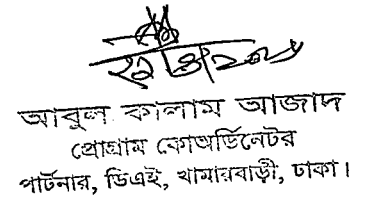 আবুল কালাম আজাদ
প্রোগ্রাম কোঅর্ডিনেটর
পার্টনার, ডিএই, খামারবাড়ী, ঢাকা।